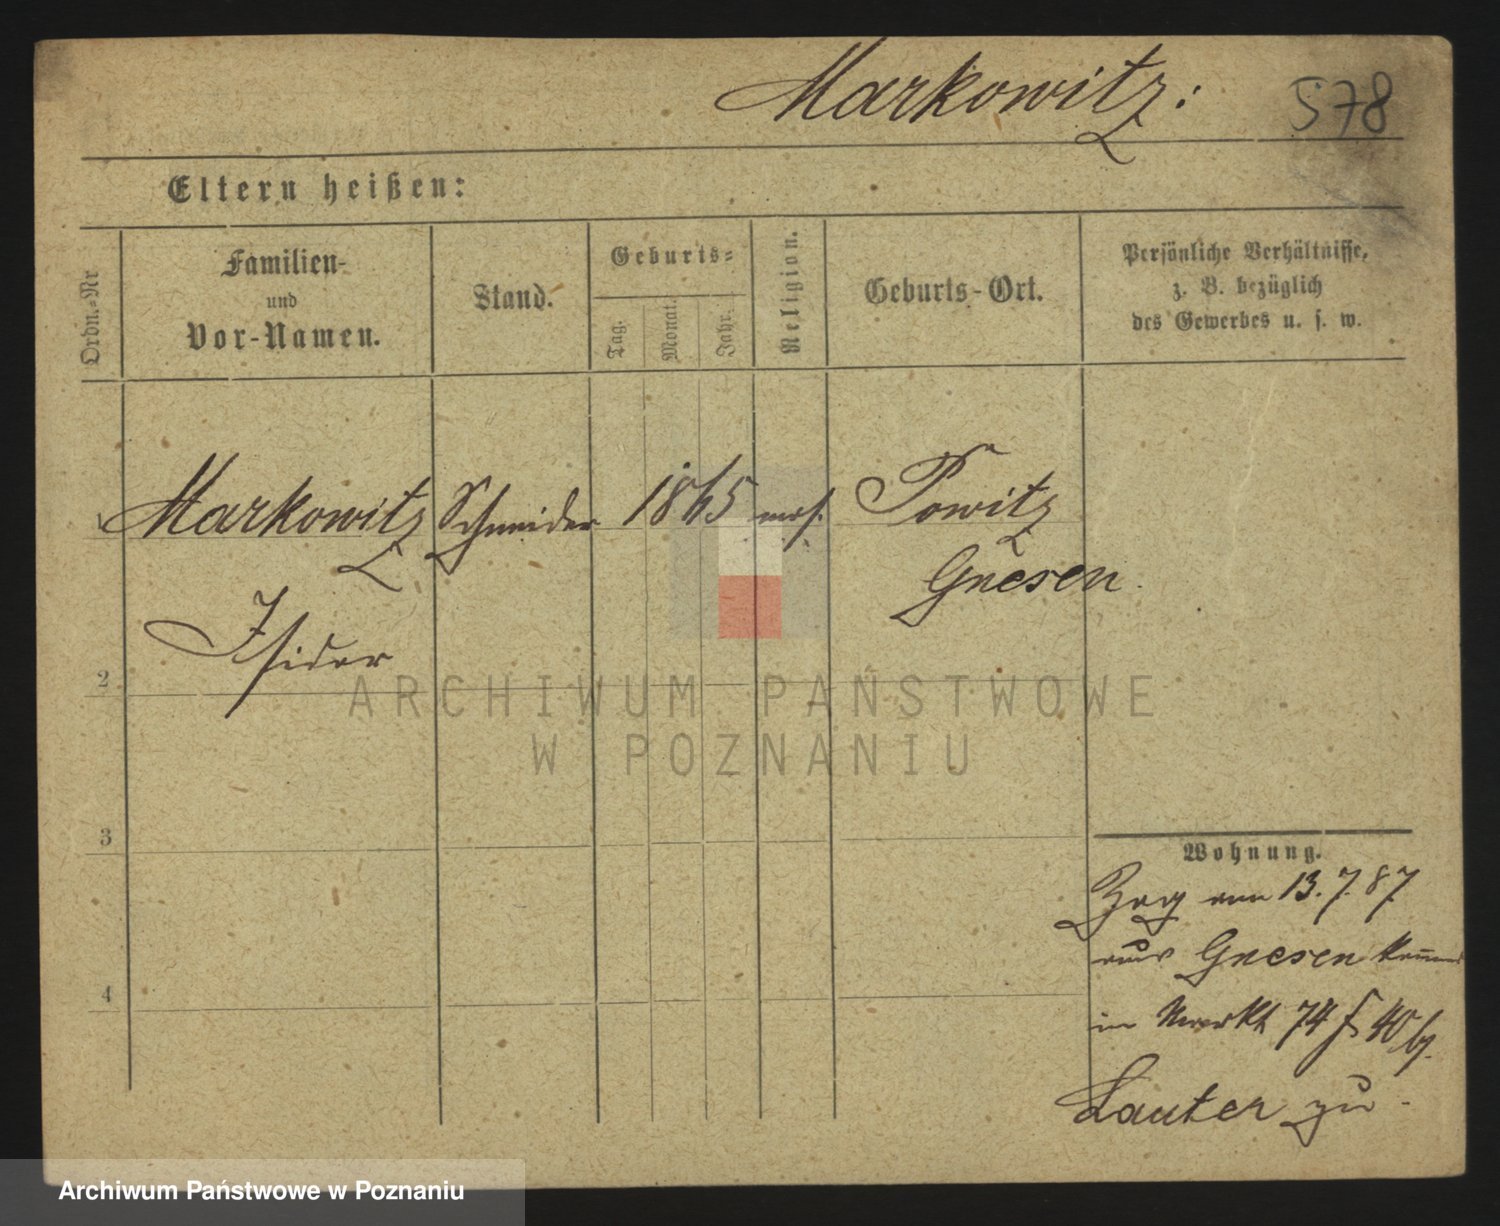 Markowitz: 578
Eltern heißen:
Ordn.=Nr
Familien-
und
Vor-Namen.
Stand.
Geburts=
Tag. Monat. Jahr.
Religion.
Geburts-Ort.
Persönliche Verhältnisse,
z. B. bezüglich
des Gewerbes u. s. w.
Markowitz Schneider 1865 mos. Powitz
Gnesen
Isidor
2
ARCHIWUM PAŃSTWOWE
W POZNANIU
3
4
Wohnung.
Zog am 13.7.87
aus Gnesen
in Markt 74
Lauter zu
Archiwum Państwowe w Poznaniu